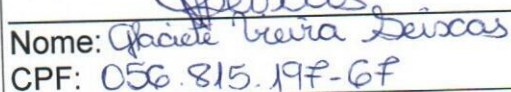 Nome: Glaciete Vieira Seixas
CPF: 056.815.197-67